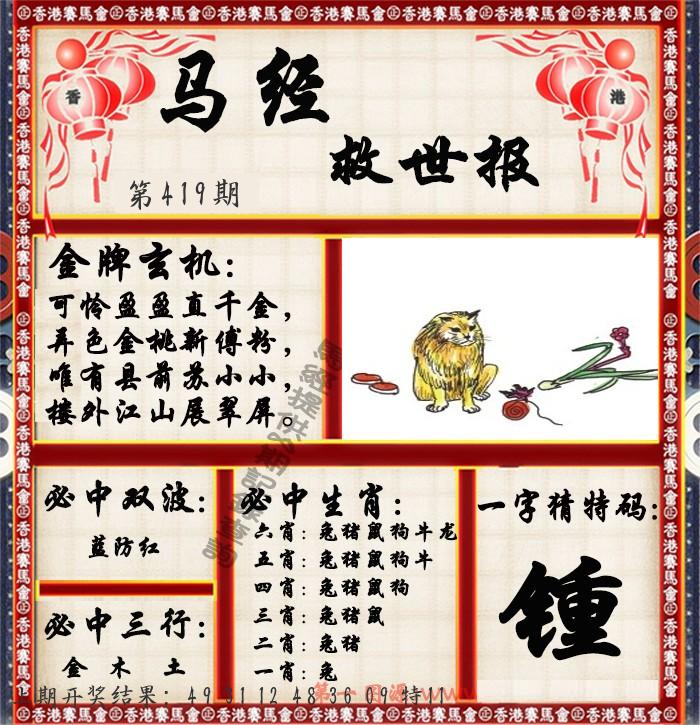 香港賽馬會
香
港
马经
救世报
第419期
金牌玄机：
可怜盈盈直千金，
弄色金桃新傅粉，
唯有县前苏小小，
楼外江山展翠屏。
必中双波：
蓝防红
必中三行：
金木土
必中生肖：
六肖：兔猪鼠狗牛龙
五肖：兔猪鼠狗牛
四肖：兔猪鼠狗
三肖：兔猪鼠
二肖：兔猪
一肖：兔
一字猜特码：
锺
期开奖结果：49 31 12 48 36 09 特11